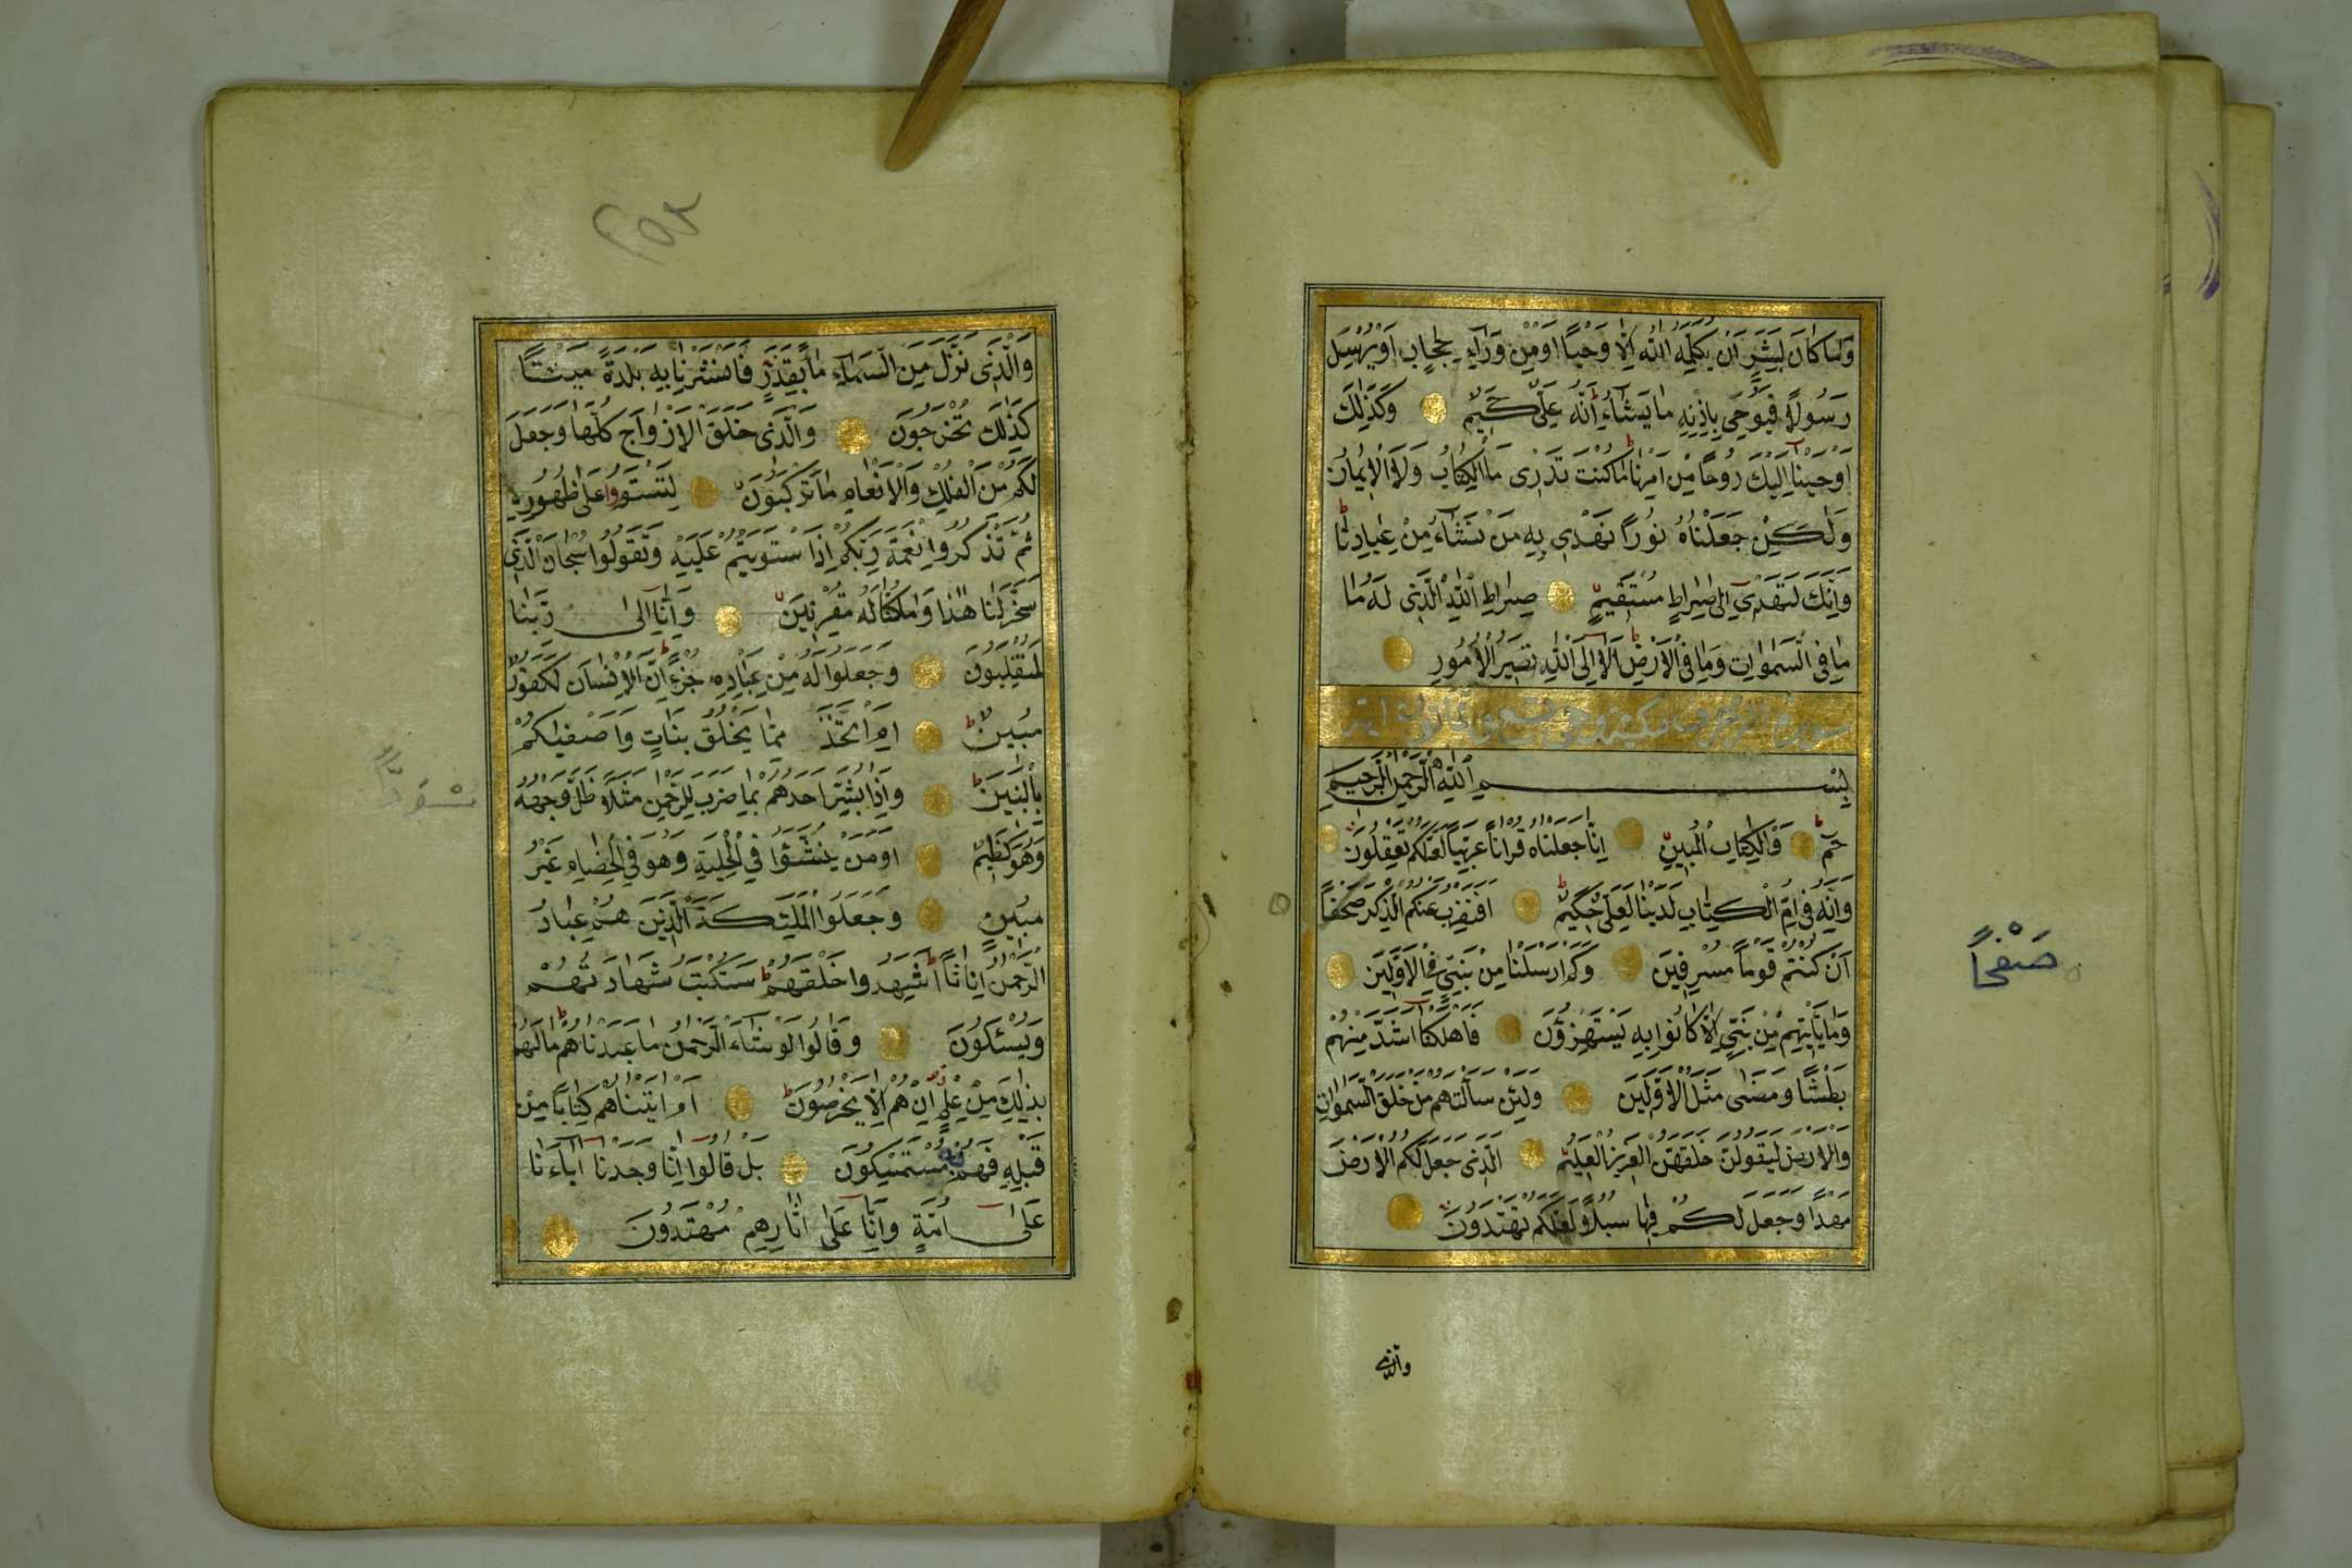 وَمَا كَانَ لِبَشَرٍ اَنْ يُكَلِّمَهُ اللّٰهُ اِلَّا وَحْيًا اَوْمِنْ وَرَاۤءِ حِجَابٍ اَوْيُرْسِلَ
رَسُولًا فَيُوحِىَ بِاِذْنِهِ مَا يَشَاۤءُ اِنَّهُ عَلِىٌّ حَكِيمٌ وَكَذٰلِكَ
اَوْحَيْنَاۤ اِلَيْكَ رُوحًا مِنْ اَمْرِنَا مَاكُنْتَ تَدْرِى مَا الْكِتَابُ وَلَا الْاِيمَانُ
وَلٰكِنْ جَعَلْنَاهُ نُورًا نَهْدِى بِهِ مَنْ نَشَاۤءُ مِنْ عِبَادِنَا
وَاِنَّكَ لَتَهْدِىۤ اِلٰى صِرَاطٍ مُسْتَقِيمٍ صِرَاطِ اللّٰهِ الَّذِى لَهُ مَا
مَا فِى السَّمٰوَاتِ وَمَا فِى الْاَرْضِ اَلَاۤ اِلَى اللّٰهِ تَصِيرُ الْاُمُورُ
سورة الزخرف مكية وهى تسع وثمانون اية
بِسْمِ اللّٰهِ الرَّحْمٰنِ الرَّحِيمِ
حٰمۤ وَالْكِتَابِ الْمُبِينِ اِنَّا جَعَلْنَاهُ قُرْاٰنًا عَرَبِيًّا لَعَلَّكُمْ تَعْقِلُونَ
وَاِنَّهُ فِىۤ اُمِّ الْكِتَابِ لَدَيْنَا لَعَلِىٌّ حَكِيمٌ اَفَنَضْرِبُ عَنْكُمُ الذِّكْرَ صَفْحًا
اَنْ كُنْتُمْ قَوْمًا مُسْرِفِينَ وَكَمْ اَرْسَلْنَا مِنْ نَبِىٍّ فِى الْاَوَّلِينَ
وَمَا يَأْتِيهِمْ مِنْ نَبِىٍّ اِلَّا كَانُوا بِهِ يَسْتَهْزِؤُنَ فَاَهْلَكْنَاۤ اَشَدَّ مِنْهُمْ
بَطْشًا وَمَضٰى مَثَلُ الْاَوَّلِينَ وَلَئِنْ سَاَلْتَهُمْ مَنْ خَلَقَ السَّمٰوَاتِ
وَالْاَرْضَ لَيَقُولُنَّ خَلَقَهُنَّ الْعَزِيزُ الْعَلِيمُ اَلَّذِى جَعَلَ لَكُمُ الْاَرْضَ
مَهْدًا وَجَعَلَ لَكُمْ فِيهَا سُبُلًا لَعَلَّكُمْ تَهْتَدُونَ
صَفْحًا
والذى
٢٥٢
وَالَّذِى نَزَّلَ مِنَ السَّمَاۤءِ مَاۤءً بِقَدَرٍ فَاَنْشَرْنَا بِهِ بَلْدَةً مَيْتًا
كَذٰلِكَ تُخْرَجُونَ وَالَّذِى خَلَقَ الْاَزْوَاجَ كُلَّهَا وَجَعَلَ
لَكُمْ مِنَ الْفُلْكِ وَالْاَنْعَامِ مَا تَرْكَبُونَ لِتَسْتَوُوا عَلٰى ظُهُورِهِ
ثُمَّ تَذْكُرُوا نِعْمَةَ رَبِّكُمْ اِذَا اسْتَوَيْتُمْ عَلَيْهِ وَتَقُولُوا سُبْحَانَ الَّذِى
سَخَّرَ لَنَا هٰذَا وَمَا كُنَّا لَهُ مُقْرِنِينَ وَاِنَّاۤ اِلٰى رَبِّنَا
لَمُنْقَلِبُونَ وَجَعَلُوا لَهُ مِنْ عِبَادِهِ جُزْءًا اِنَّ الْاِنْسَانَ لَكَفُورٌ
مُبِينٌ اَمِ اتَّخَذَ مِمَّا يَخْلُقُ بَنَاتٍ وَاَصْفٰيكُمْ
بِالْبَنِينَ وَاِذَا بُشِّرَ اَحَدُهُمْ بِمَا ضَرَبَ لِلرَّحْمٰنِ مَثَلًا ظَلَّ وَجْهُهُ
وَهُوَ كَظِيمٌ اَوَمَنْ يُنَشَّؤُا فِى الْحِلْيَةِ وَهُوَ فِى الْخِصَامِ غَيْرُ
مُبِينٍ وَجَعَلُوا الْمَلٰئِكَةَ الَّذِينَ هُمْ عِبَادُ
الرَّحْمٰنِ اِنَاثًا اَشَهِدُوا خَلْقَهُمْ سَتُكْتَبُ شَهَادَتُهُمْ
وَيُسْئَلُونَ وَقَالُوا لَوْ شَاۤءَ الرَّحْمٰنُ مَا عَبَدْنَاهُمْ مَا لَهُمْ
بِذٰلِكَ مِنْ عِلْمٍ اِنْ هُمْ اِلَّا يَخْرُصُونَ اَمْ اٰتَيْنَاهُمْ كِتَابًا مِنْ
قَبْلِهِ فَهُمْ بِهِ مُسْتَمْسِكُونَ بَلْ قَالُوۤا اِنَّا وَجَدْنَاۤ اٰبَاۤءَنَا
عَلٰىۤ اُمَّةٍ وَاِنَّا عَلٰىۤ اٰثَارِهِمْ مُهْتَدُونَ